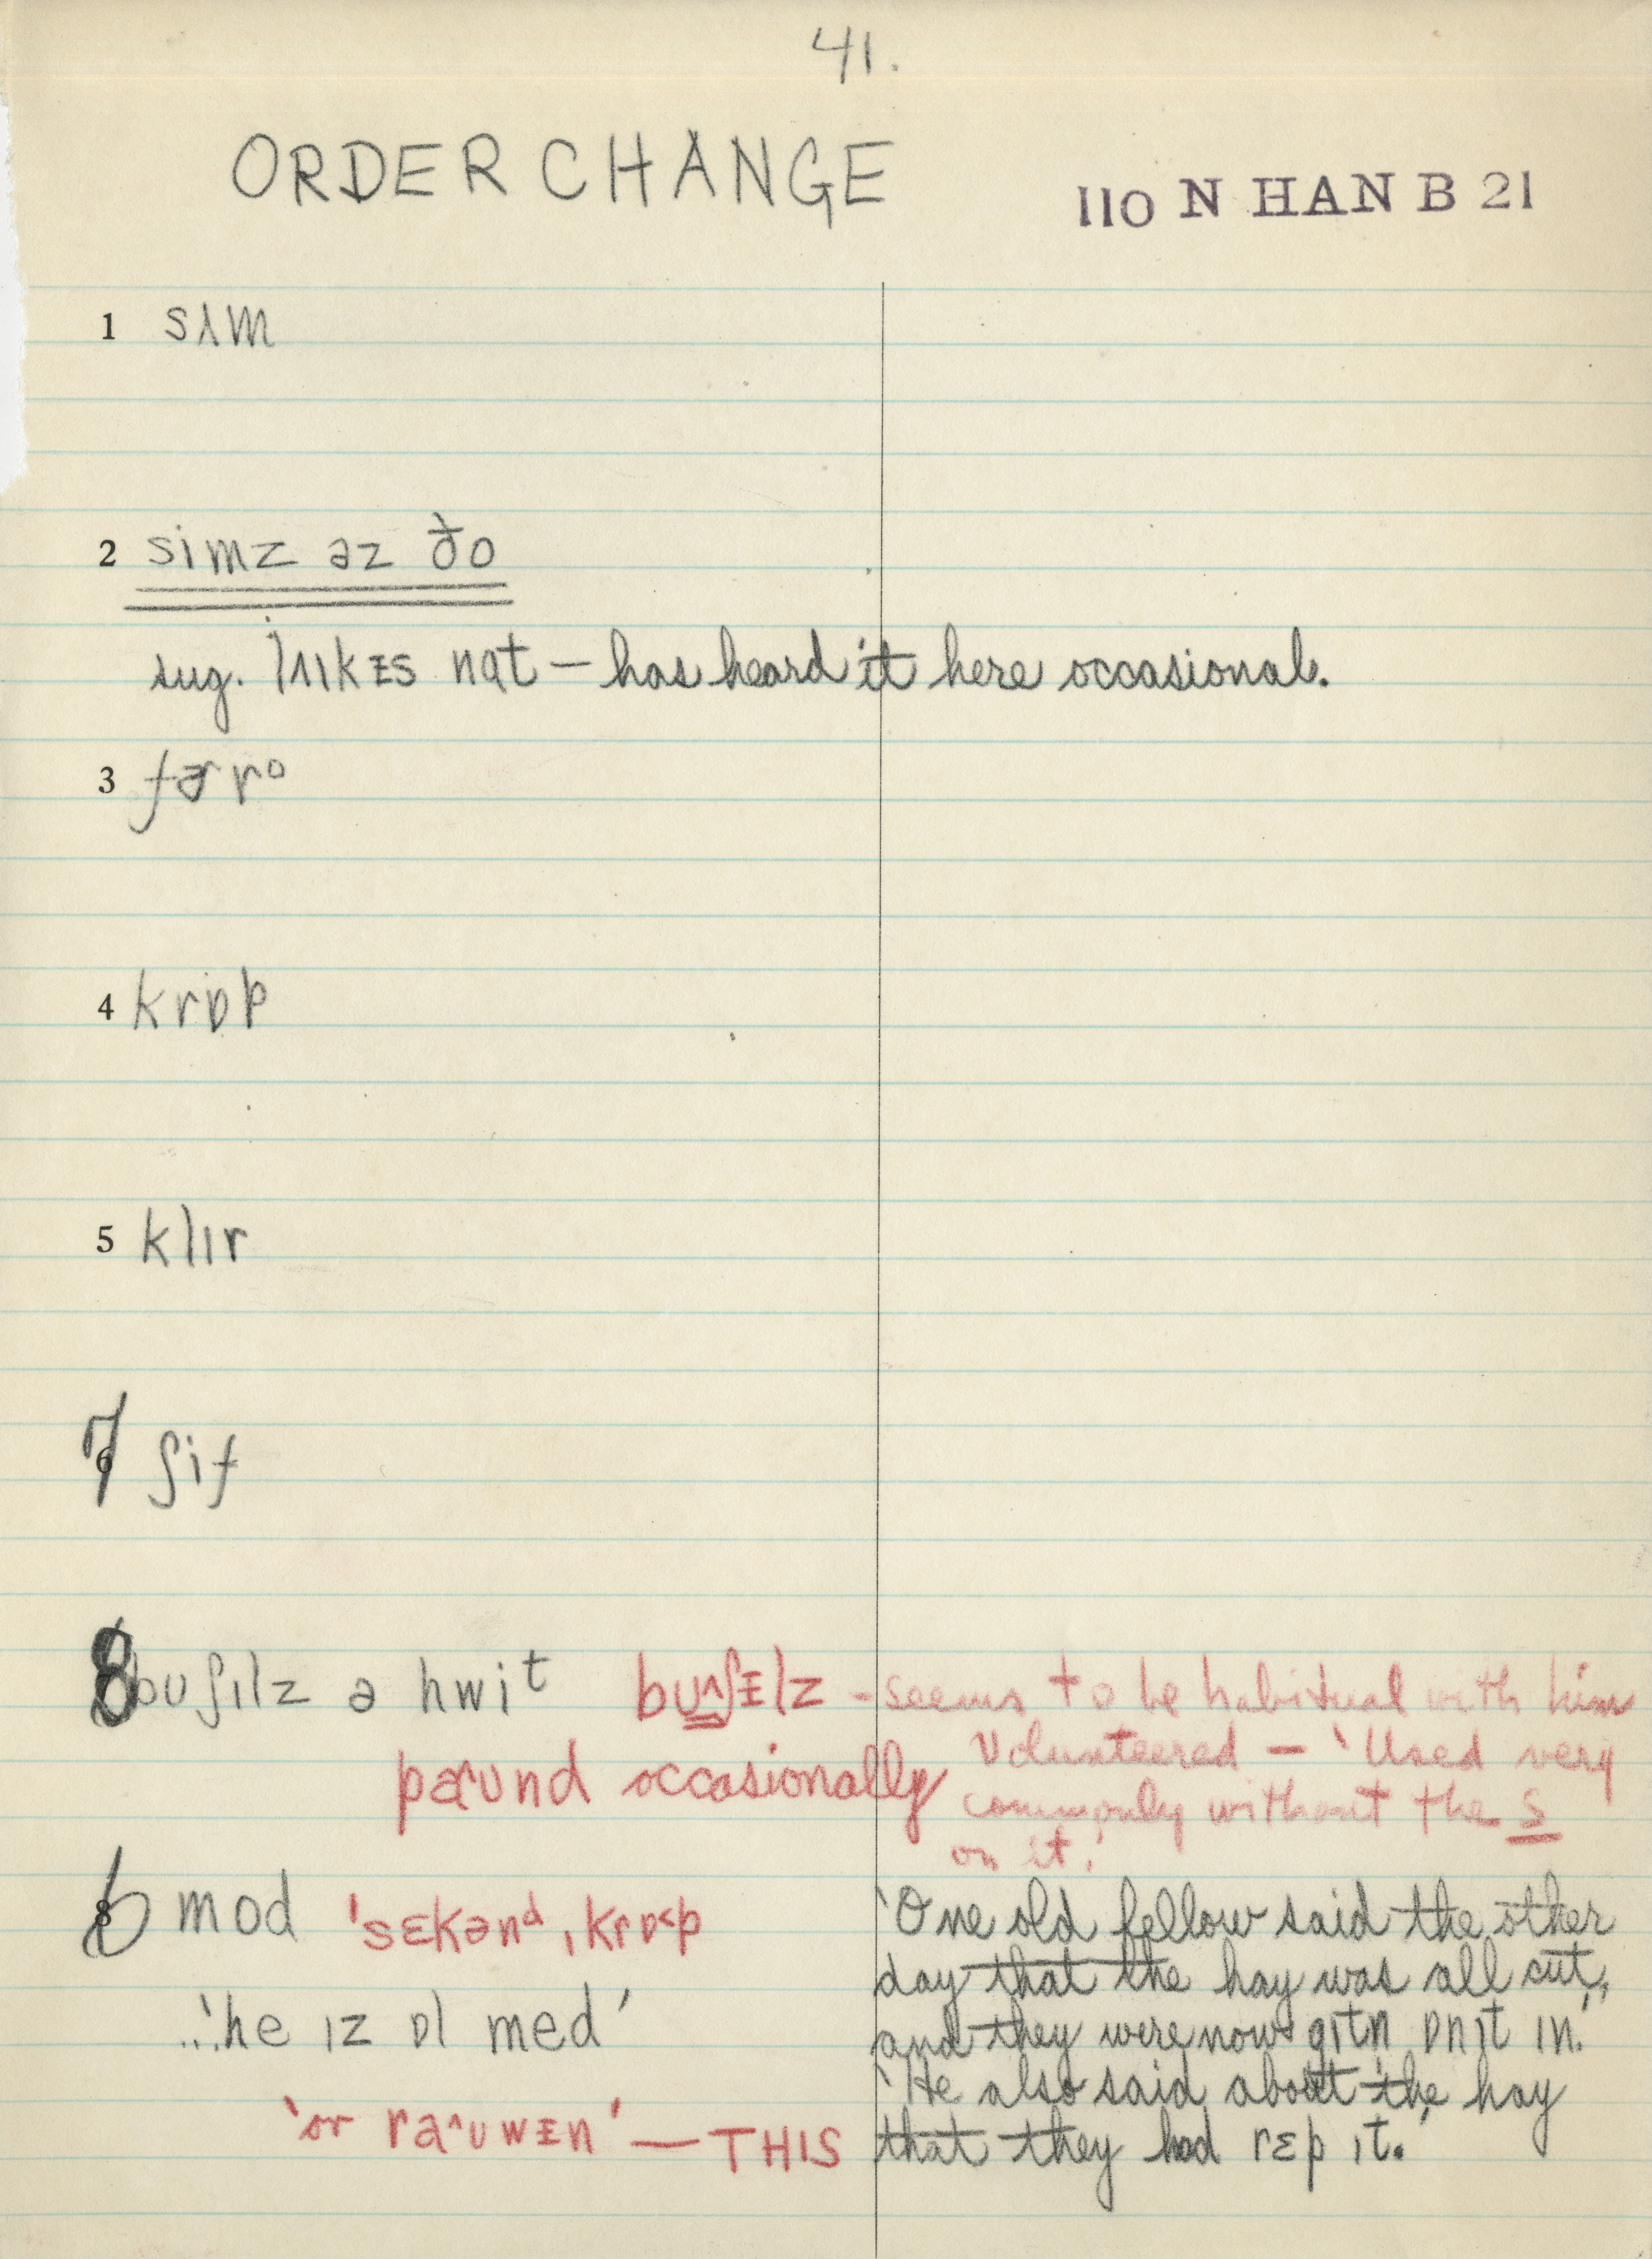 41.
ORDER CHANGE
110 N HAN B 21
1 sʌm
2 simz əz ðo
sug. lʌɪkᵻs nɑt — has heard it here occasional.
3 fɚro
4 krɒp
5 klɪr
7 ʃif
8 buʃɪlz ə hwit bʊ^ʃᵻlz - seems to be habitual with him
Volunteered — 'Used very
commonly without the s
on it.'
paʊnd occasionally
6 mod 'sɛkənᵈ ˌkrɒp
...'he ɪz ɒl med'
'or raʊwᵻn' — THIS
'One old fellow said the other
day that the hay was all cut,
and they were now gɪtn ɒnɪt ɪn.'
'He also said about the hay
that they had rɛp ɪt.'